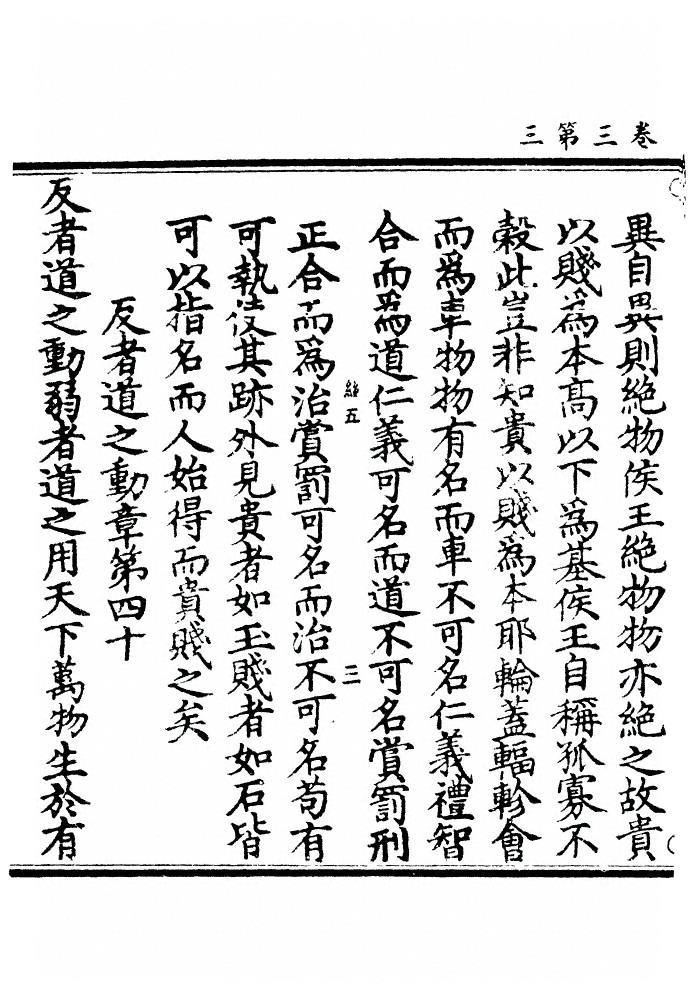 卷三第三
異自異則絶物侯王絶物物亦絶之故貴
以賤為本髙以下為基侯王自稱孤寡不
穀此豈非知貴以賤為本耶輪蓋輻軫會
而為車物物有名而車不可名仁義禮智
合而為道仁義可名而道不可名賞罰刑
絲五 三
正合而為治賞罰可名而治不可名苟有
可執使其跡外見貴者如玉賤者如石皆
可以指名而人始得而貴賤之矣
反者道之動章第四十
反者道之動弱者道之用天下萬物生於有